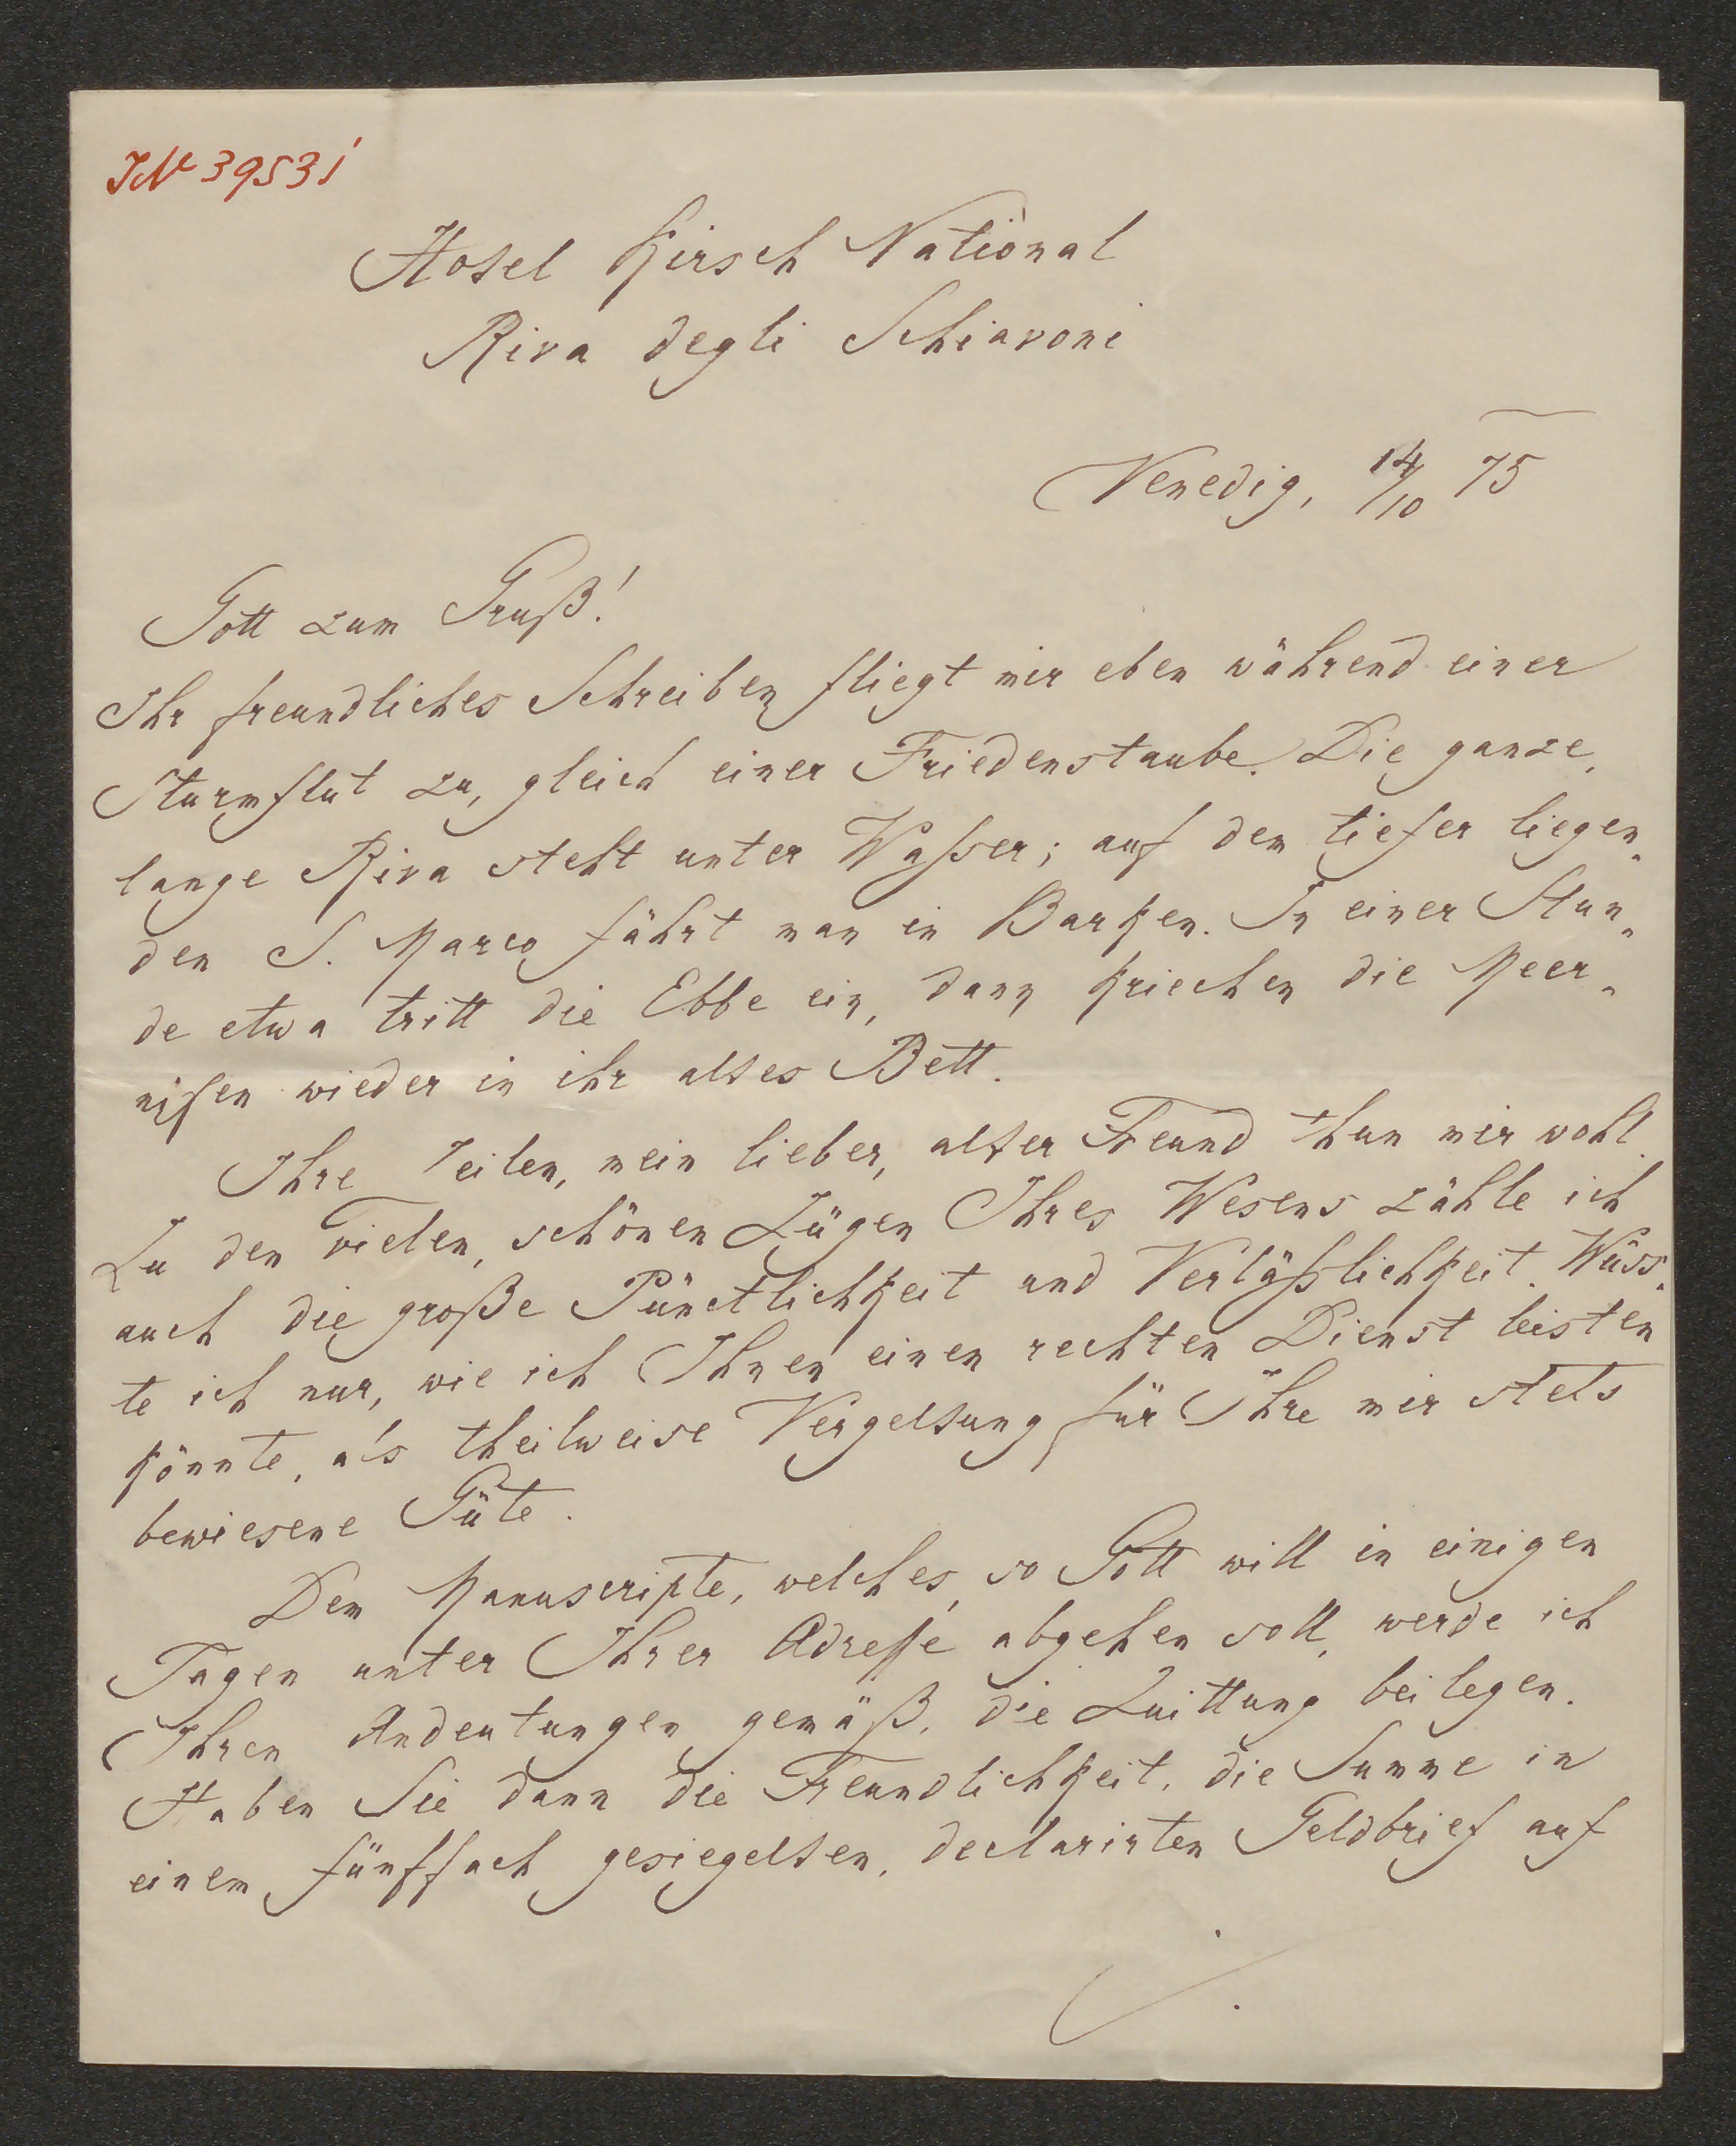 IN 39531
Hotel Kirsch National
Riva degli Schiavoni
Venedig, 14/10 75
Gott zum Gruß!
Ihr freundliches Schreiben fliegt mir eben während einer
Sturmflut zu, gleich einer Friedenstaube. Die ganze,
lange Riva steht unter Waßer; auf dem tiefer liegen-
den S. Marco fährt man in Barken. In einer Stun-
de etwa tritt die Ebbe ein, dann kriechen die Meer-
nixen wieder in ihr altes Bett.
Ihre Zeilen, mein lieber, alter Freund thun mir wohl.
Zu den vielen, schönen Zügen Ihres Wesens zähle ich
auch die große Pünctlichkeit und Verläßlichkeit. Wüss-
te ich nur, wie ich Ihnen einen rechten Dienst leisten
könnte, als theilweise Vergeltung für Ihre mir stets
bewiesene Güte.
Dem Manuscripte, welches, so Gott will in einigen
Tagen unter Ihrer Adresse abgehen soll, werde ich
Ihren Andeutungen gemäß, die Quittung beilegen.
Haben Sie dann die Freundlichkeit, die Summe in
einem fünffach gesiegelten, declarirten Geldbrief auf